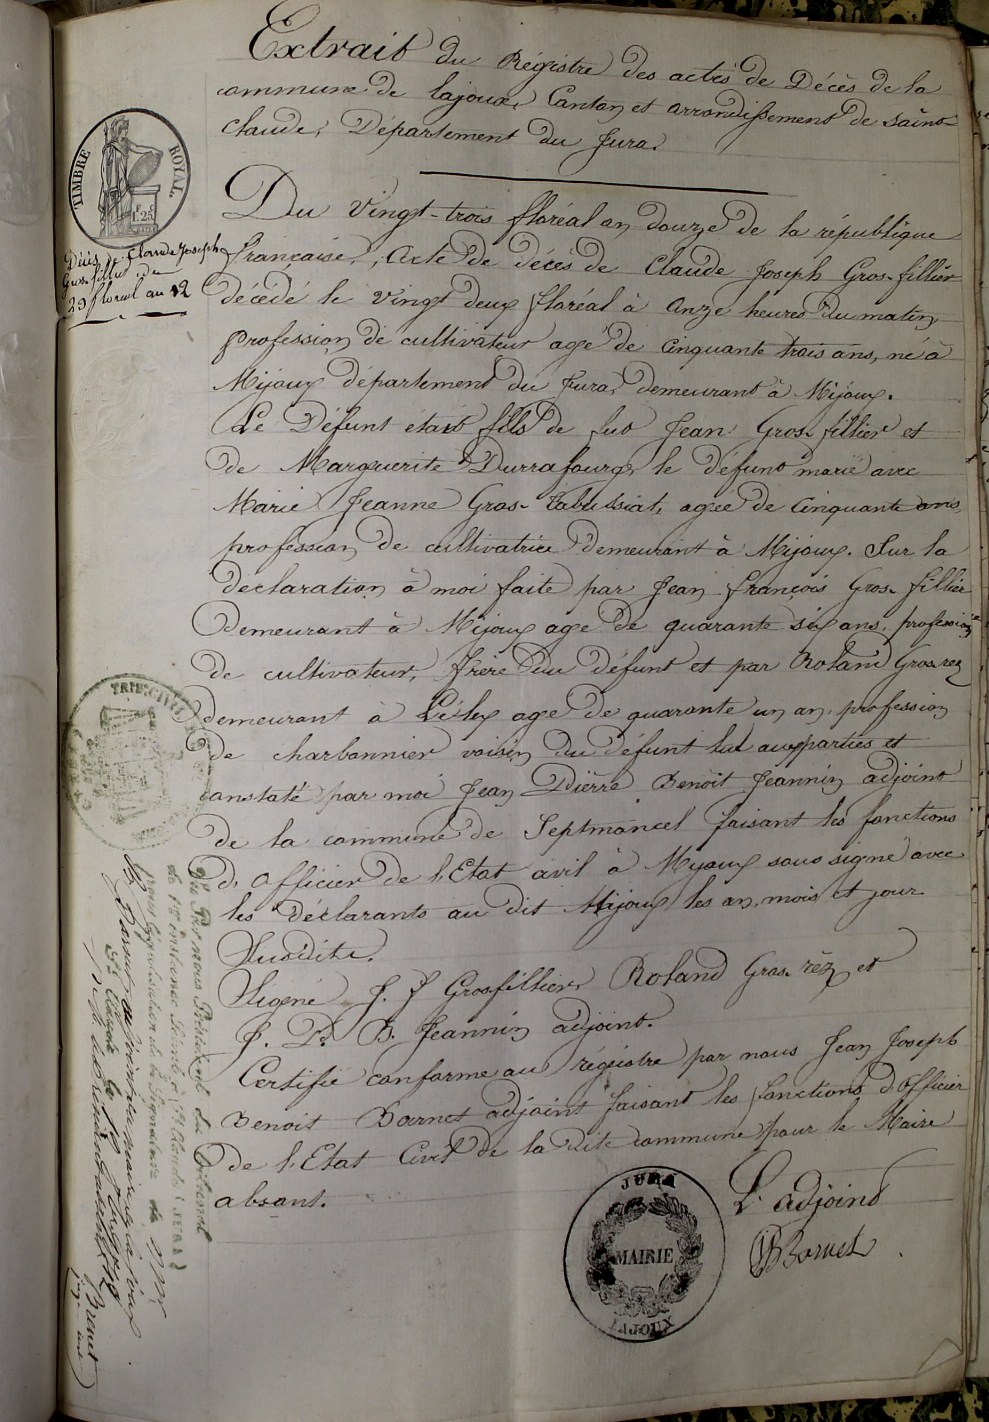 Extrait du Régistre des actes de Décès de la
commune de Lajoux, Canton et arrondissement de Saint-
Claude, Département du Jura.
TIMBRE ROYAL
1.25
Décès, Claude Joseph
Gros-fillier
23 floréal an 12
Du Vingt-trois floréal an douze de la république
française, Acte de décès de Claude Joseph Gros-fillier
décédé le Vingt deux floréal à Onze heures du matin
profession de cultivateur agé de Cinquante trois ans, né à
Mijoux, département du Jura, demeurant à Mijoux.
Le Défunt était fils de fut Jean Gros-fillier et
de Marguerite Durrafourg, le défunt marié avec
Marie Jeanne Gros-tabussiat, agée de Cinquante ans,
profession de cultivatrice demeurant à Mijoux. Sur la
déclaration à moi faite par Jean françois Gros-fillier
demeurant à Mijoux agé de quarante six ans, profession
de cultivateur, frère du défunt et par Roland Gros-rez
demeurant à Lélex agé de quarante un an, profession
de charbonnier voisin du défunt lut aux parties et
constaté par moi Jean Pierre Benoit Jeannin adjoint
de la commune de Septmoncel faisant les fonctions
d'officier de l'Etat civil à Mijoux sous signé avec
les Déclarants au dit Mijoux les an, mois et jour
Susdits.
Signé J. f Grosfillier, Roland Gros-rèz, et
J. P. B. Jeannin adjoint.
Certifié conforme au régistre par nous Jean Joseph
Benoit Barnet adjoint faisant les fonctions d'officier
de l'Etat Civil de la dite commune pour le Maire
absant.
L'adjoind
Bornet
JURA
MAIRIE
LAJOUX
TRIB. CIVIL
Vu Par nous Président du Tribunal
de 1ère instance séant à St Claude (JURA)
pour légalisation de la signature de
St Claude le